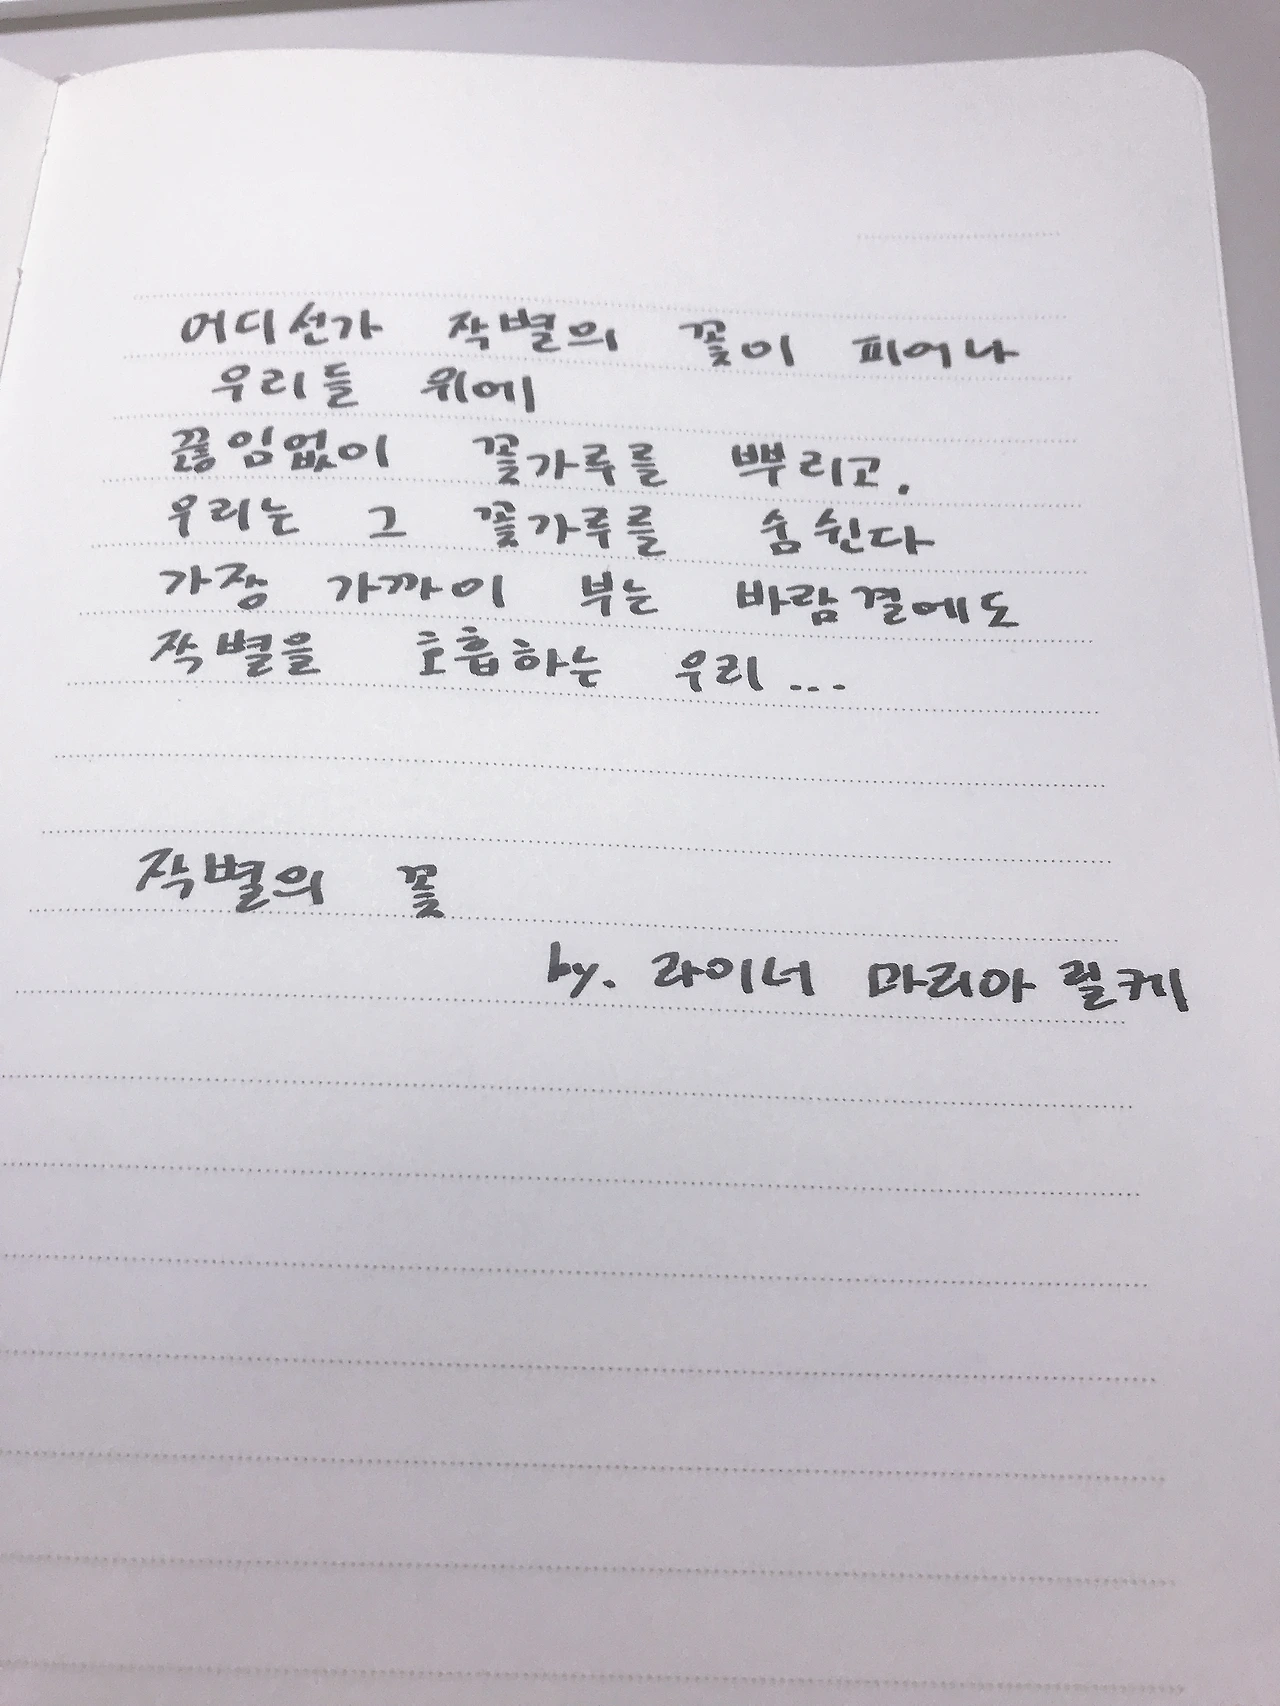 어디선가 작별의 꽃이 피어나
우리들 위에
끊임없이 꽃가루를 뿌리고.
우리는 그 꽃가루를 숨쉰다
가장 가까이 부는 바람결에도
작별을 호흡하는 우리...
작별의 꽃
by. 라이너 마리아 릴케